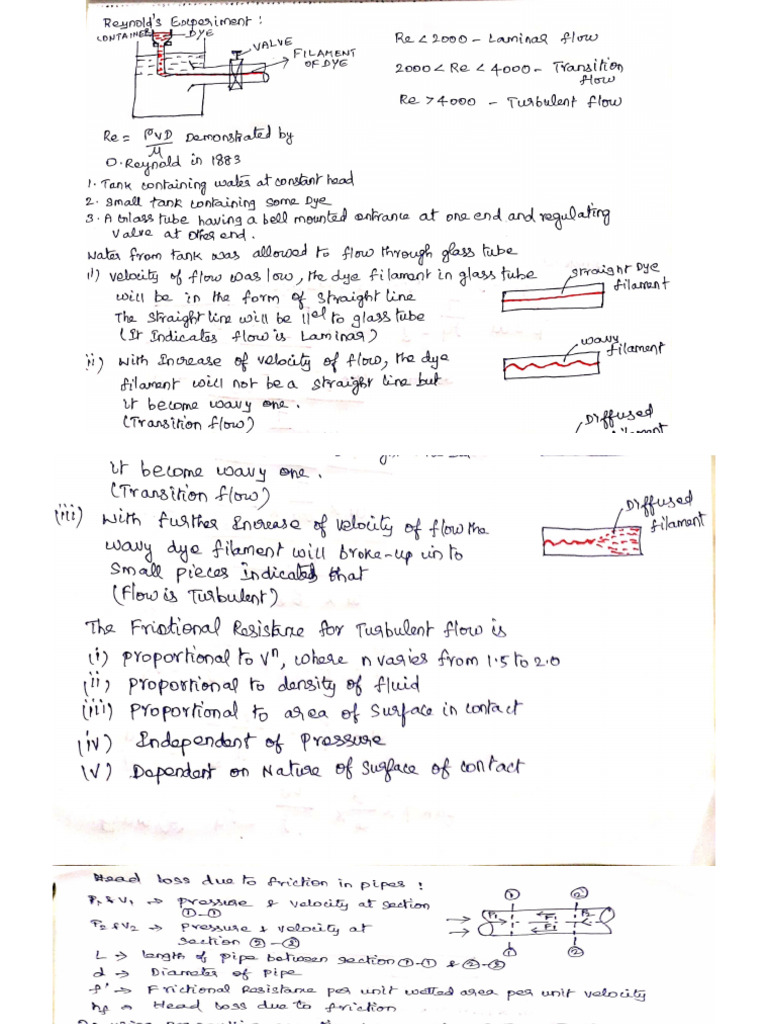 Reynold's Experiment :
CONTAINER
DYE
VALVE
FILAMENT
OF DYE
Re < 2000 - Laminar flow
2000 < Re < 4000 - Transition
flow
Re > 4000 - Turbulent flow
Re = ρVD/μ Demonstrated by
O. Reynold in 1883
1. Tank containing water at constant head
2. Small tank containing some Dye
3. A Glass tube having a bell mounted entrance at one end and regulating
valve at other end.
Water from tank was allowed to flow through glass tube
i) velocity of flow was low, the dye filament in glass tube
will be in the form of straight line
The straight line will be ||el to glass tube
(It Indicates flow is Laminar)
straight Dye
filament
ii) With Increase of velocity of flow, the dye
filament will not be a straight line but
it become wavy one.
(Transition flow)
wavy
filament
Diffused
it become wavy one.
(Transition flow)
(iii) With further Increase of velocity of flow the
wavy dye filament will broke-up in to
small pieces indicates that
(Flow is Turbulent)
Diffused
filament
The Frictional Resistance for Turbulent flow is
(i) proportional to Vⁿ, where n varies from 1.5 to 2.0
(ii) proportional to density of fluid
(iii) proportional to area of surface in contact
(iv) Independent of pressure
(v) Dependent on Nature of surface of contact
Head loss due to friction in pipes :
P₁ & V₁ → pressure & velocity at section
①-①
P₂ & V₂ → pressure & velocity at
section ②-②
L → length of pipe between section ①-① & ②-②
d → Diameter of pipe
f' → Frictional Resistance per unit wetted area per unit velocity
hf = Head loss due to friction
① ②
P₁ F₁ P₂
F₁
① ②